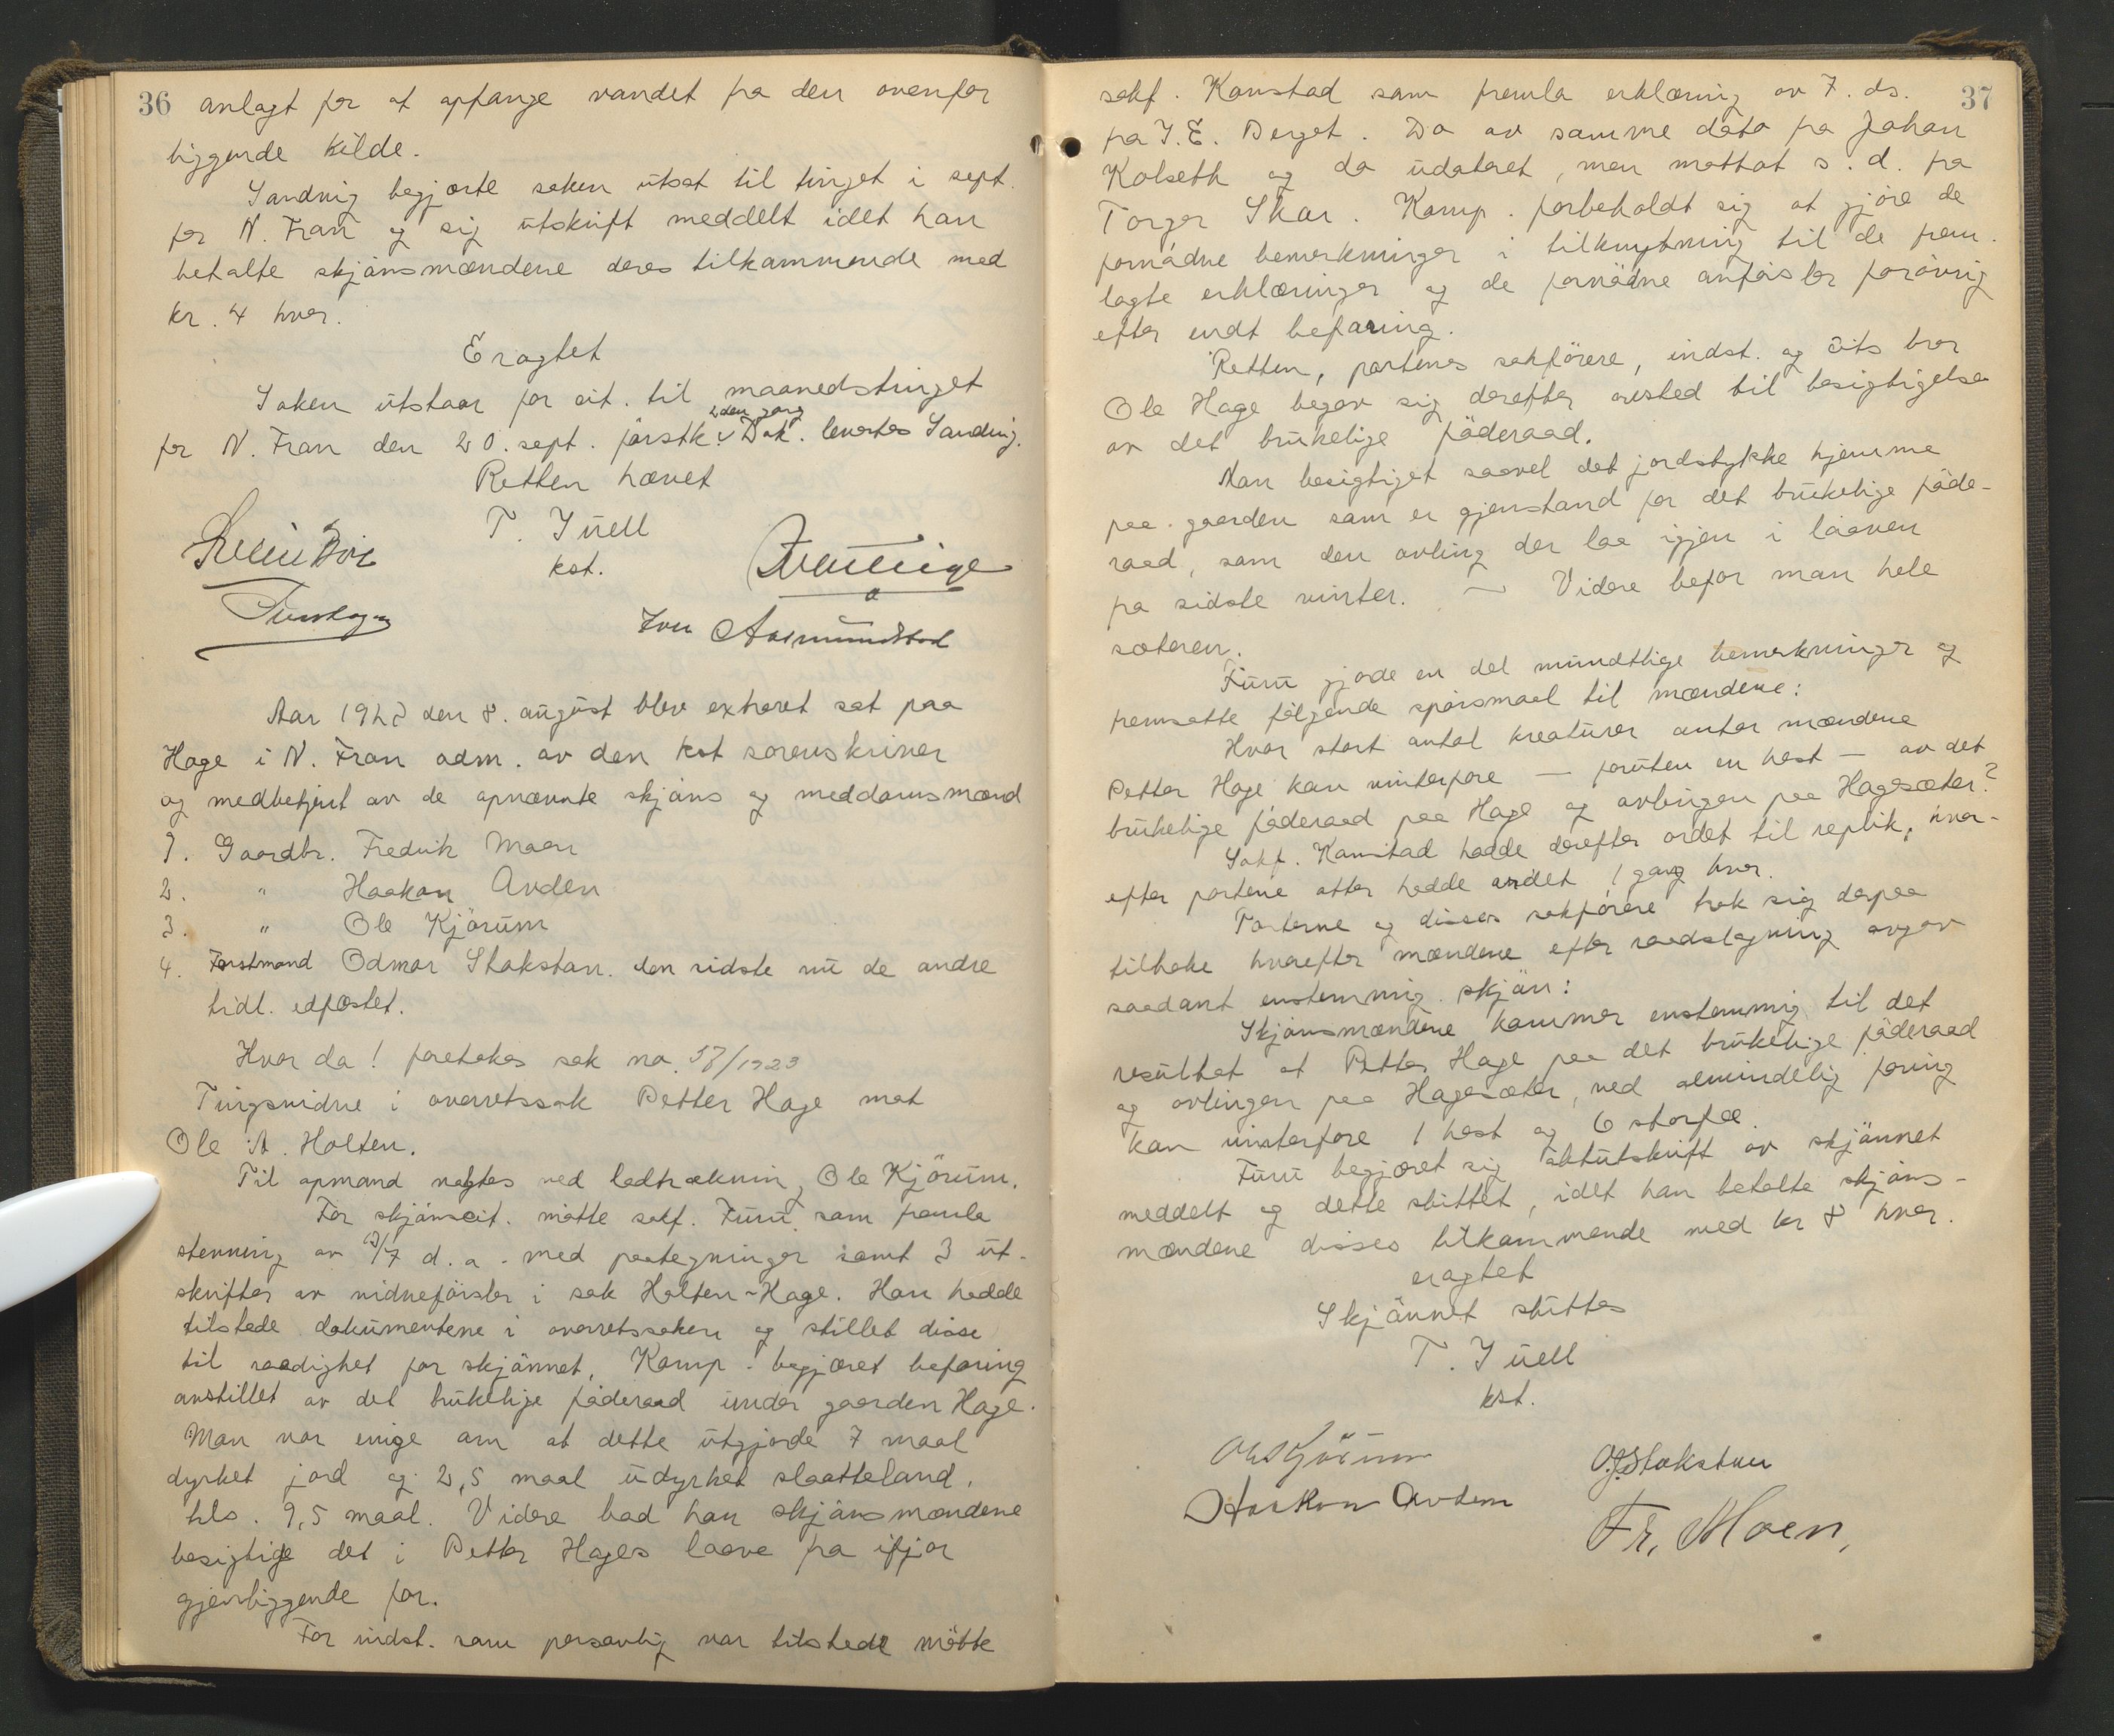 36 anlagt for at opfange vandet fra den ovenfor
liggende kilde.
Sandvig begjærte saken utsat til tinget i sept.
for N. Fron og sig utskrift meddelt idet han
betalte skjønsmændene deres tilkommende med
kr. 4 hver.
Eragtet
Saken utstaar for cit. til maanedstinget
2den gang
for N. Fron den 20. sept. førstk. v Dok. levertes Sandvig.
Retten hævet
T. Juell
kst.
Iver Aasmundstad
Aar 1923 den 8. august blev extraret sat paa
Hage i N. Fron adm. av den kst sorenskriver
og medbetjent av de opnævnte skjøns og meddomsmænd
1. Gaardbr. Fredrik Moen
2. " Haakon Avdem
3. " Ole Kjørum
4. Forstmand Odmar Stokstan. den sidste nu de andre
tidl. edfæstet.
Hvor da! foretokes sak no. 57/1923
Tingsvidne i overretssak Petter Hage mot
Ole A. Holten.
Til opmand valgtes ved lodtrækning Ole Kjørum.
For skjønscit. møtte sakf. Furu som fremla
stevning av /7 d. a. med paategninger samt 3 ut-
skrifter av vidneførsler i sak Holten-Hage. Han hadde
tilstede dokumentene i overretssaken og stillet disse
til raadighet for skjønnet. Komp. begjæret befaring
anstillet av det brukelige føderaad under gaarden Hage.
Man var enige om at dette utgjorde 7 maal
dyrket jord og 2,5 maal udyrket slaatteland.
tils. 9,5 maal. Videre bad han skjønsmændene
besigtige det i Petter Hages laave fra ifjor
gjenliggende for.
For indst. som personlig var tilstede møtte
37
sakf. Kamstad som fremla erklæring av 7. ds.
fra I. E. Berget. Do av samme dato fra Johan
Kolseth og do udateret, men mottat s. d. fra
Torger Skar. Komp. forbeholdt sig at gjøre de
fornødne bemerkninger i tilknytning til de frem-
lagte erklæringer og de fornødne anførsler forøvrig
efter endt befaring.
Retten, partenes sakførere, indst. og cits bror
Ole Hage begav sig derefter avsted til besigtigelse
av det brukelige føderaad.
Man besigtiget saavel det jordstykke hjemme
paa gaarden som er gjenstand for det brukelige føde-
raad, som den avling der laa igjen i laaven
fra sidste vinter. — Videre befor man hele
sæteren.
Furu gjorde en del mundtlige bemerkninger og
fremsatte følgende spørsmaal til mændene:
Hvor stort antal kreaturer antar mændene
Petter Hage kan vinterfore — foruten en hest — av det
brukelige føderaad paa Hage og avlingen paa Hagesæter?
Sakf. Kamstad hadde derefter ordet til replik, hvor-
efter partene atter hadde ordet 1 gang hver.
Parterne og disses sakførere trak sig derpaa
tilbake hvorefter mændene efter raadslagning avgav
saadant enstemmig skjøn:
Skjønsmændene kommer enstemmig til det
resultat at Petter Hage paa det brukelige føderaad
og avlingen paa Hagesæter, ved almindelig foring
kan vinterfore 1 hest og 6 storfæ.
Furu begjæret sig aktutskrift av skjønnet
meddelt og dette sluttet, idet han betalte skjøns-
mændene disses tilkommende med kr 8 hver.
eragtet
Skjønnet sluttes
T. Juell
kst.
Ole Kjörum
O. J. Stokstan
Haakon Avdem
Fr. Moen,